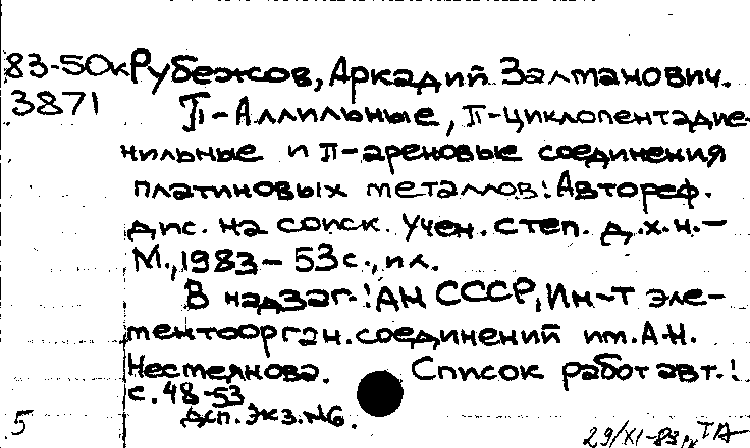 83-50к Рубежов, Аркадий Залманович.
3871 П-Аллильные, π-циклопентадие-
нильные и π-ареновые соединения
платиновых металлов: Автореф.
дис. на соиск. учен. степ. д.х.н.-
М., 1983 - 53 с., ил.
В надзаг.: АН СССР, Ин-т эле-
ментоорган. соединений им. А.Н.
Несмеянова. Список работ авт.:
с. 48-53
Дсп. Экз. №6.
5 29/XI-83 ТА